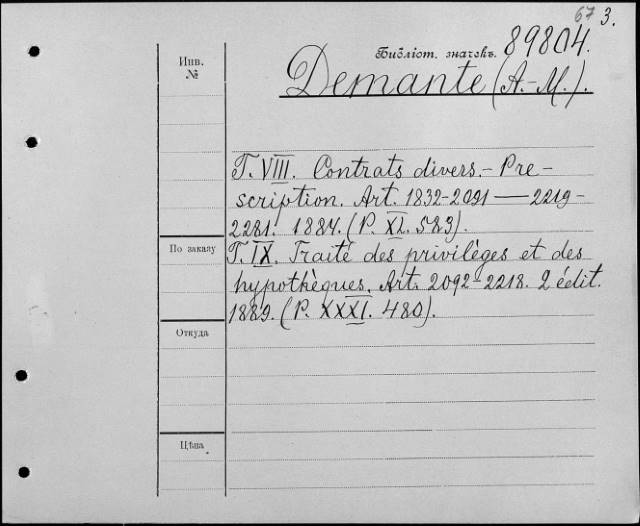 67 3.
Инв.
№
Библіот. значекъ. 89804.
Demante (A.-M.).
T. VIII. Contrats divers.- Pre-
scription. Art. 1832-2091 — 2219-
2281. 1884. (P. XI. 583).
По заказу
T. IX. Traité des privilèges et des
hypothèques. Art. 2092-2218. 2 édit.
1889. (P. XXXI. 480).
Откуда
Цѣна